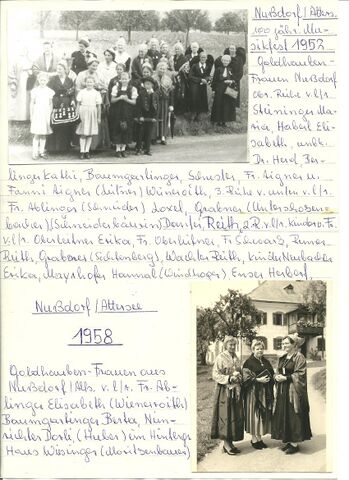 Nußdorf/Atters.
100 jähr. Mu-
sikfest 1952
Goldhauben-
Frauen Nußdorf
Obr. Reihe v.l/r.
Steininger Ma-
ria, Haberl Eli-
sabeth, unbk.
Dr. Herol Ber-
linger Kathi, Baumgartinger, Schuster, Fr. Aigner u.
Fanni Aigner Wieneroith, 3. Reihe v. unten v.l/r.
Fr. Ablinger (Schneider) Loxel, Grabner
Dankl, Reith, 2 R. v.l/r. Kinder v. Fr.
v.l/r. Oberleitner Erika, Fr. Oberleitner, Fr. Schwarz,
Reith, Grabner (Lichtenberg), Wachter Reith, Kinder Neubacher
Erika, Mayrhofer Hannal (Windhager) Enser Herbert.
Nußdorf/Attersee
1958
Goldhauben-Frauen aus
Nußdorf/Atts. v. l/r. Fr. Ab-
linger Elisabeth (Wieneroith)
Baumgartinger Berta, Neu-
richter Dorli, (Huber) im Hintergr.
Haus Wiesinger (Moritzenbauer)